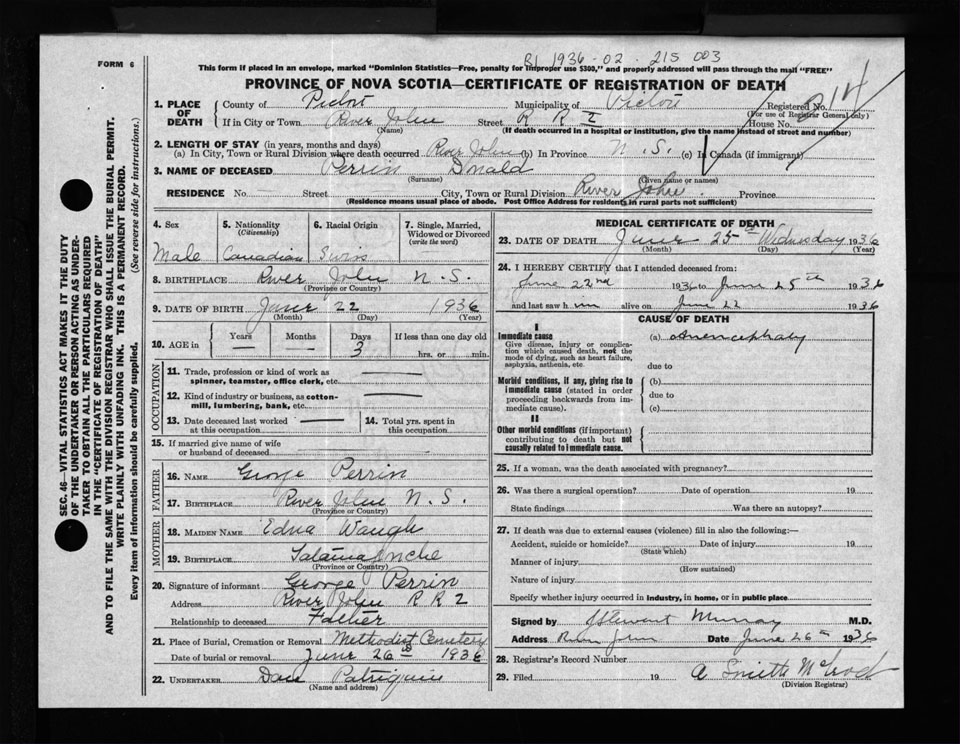 R1 1936-02-215003
FORM 6
This form if placed in an envelope, marked "Dominion Statistics—Free, penalty for improper use $300," and properly addressed will pass through the mail "FREE"
PROVINCE OF NOVA SCOTIA—CERTIFICATE OF REGISTRATION OF DEATH
1. PLACE OF DEATH
County of Pictou Municipality of Pictou Registered No. 214
(For use of Registrar General only)
If in City or Town River John Street R R I House No.
(Name) (If death occurred in a hospital or institution, give the name instead of street and number)
2. LENGTH OF STAY (in years, months and days)
(a) In City, Town or Rural Division where death occurred River John (b) In Province N. S. (c) In Canada (if immigrant)
3. NAME OF DECEASED Perrin Donald
(Surname) (Given name or names)
RESIDENCE No. — Street City, Town or Rural Division River John Province
(Residence means usual place of abode. Post Office Address for residents in rural parts not sufficient)
4. Sex Male
5. Nationality (Citizenship) Canadian
6. Racial Origin Swiss
7. Single, Married, Widowed or Divorced (write the word)
8. BIRTHPLACE River John N. S.
(Province or Country)
9. DATE OF BIRTH June 22 1936
(Month) (Day) (Year)
10. AGE in Years — Months — Days 3 If less than one day old hrs. or min.
OCCUPATION
11. Trade, profession or kind of work as spinner, teamster, office clerk, etc. —
12. Kind of industry or business, as cotton-mill, lumbering, bank, etc. —
13. Date deceased last worked at this occupation —
14. Total yrs. spent in this occupation
15. If married give name of wife or husband of deceased
FATHER
16. NAME George Perrin
17. BIRTHPLACE River John N. S.
(Province or Country)
MOTHER
18. MAIDEN NAME Edna Waugh
19. BIRTHPLACE
(Province or Country)
20. Signature of informant George Perrin
Address River John R R 2
Relationship to deceased Father
21. Place of Burial, Cremation or Removal Methodist Cemetery
Date of burial or removal June 26th 1936
22. UNDERTAKER Patriquin
(Name and address)
MEDICAL CERTIFICATE OF DEATH
23. DATE OF DEATH June 25th Wednesday 1936
(Month) (Day) (Year)
24. I HEREBY CERTIFY that I attended deceased from:
June 22nd 1936 to June 25th 1936
and last saw h im alive on June 22 1936
CAUSE OF DEATH
I
Immediate cause
Give disease, injury or complication which caused death, not the mode of dying, such as heart failure, asphyxia, asthenia, etc.
(a) Anencephaly
due to
Morbid conditions, if any, giving rise to immediate cause (stated in order proceeding backwards from immediate cause).
(b)
due to
(c)
II
Other morbid conditions (if important) contributing to death but not causally related to immediate cause.
25. If a woman, was the death associated with pregnancy?
26. Was there a surgical operation? Date of operation 19
State findings Was there an autopsy?
27. If death was due to external causes (violence) fill in also the following:—
Accident, suicide or homicide? Date of injury 19
(State which)
Manner of injury
(How sustained)
Nature of injury
Specify whether injury occurred in industry, in home, or in public place
Signed by Stewart Murray M.D.
Address River John Date June 26th 1936
28. Registrar's Record Number
29. Filed 19 A Smith McLeod
(Division Registrar)
SEC. 46—VITAL STATISTICS ACT MAKES IT THE DUTY
OF THE UNDERTAKER OR PERSON ACTING AS UNDER-
TAKER TO OBTAIN ALL THE PARTICULARS REQUIRED
IN THE "CERTIFICATE OF REGISTRATION OF DEATH"
AND TO FILE THE SAME WITH THE DIVISION REGISTRAR WHO SHALL ISSUE THE BURIAL PERMIT.
WRITE PLAINLY WITH UNFADING INK. THIS IS A PERMANENT RECORD.
Every item of information should be carefully supplied. (See reverse side for instructions.)